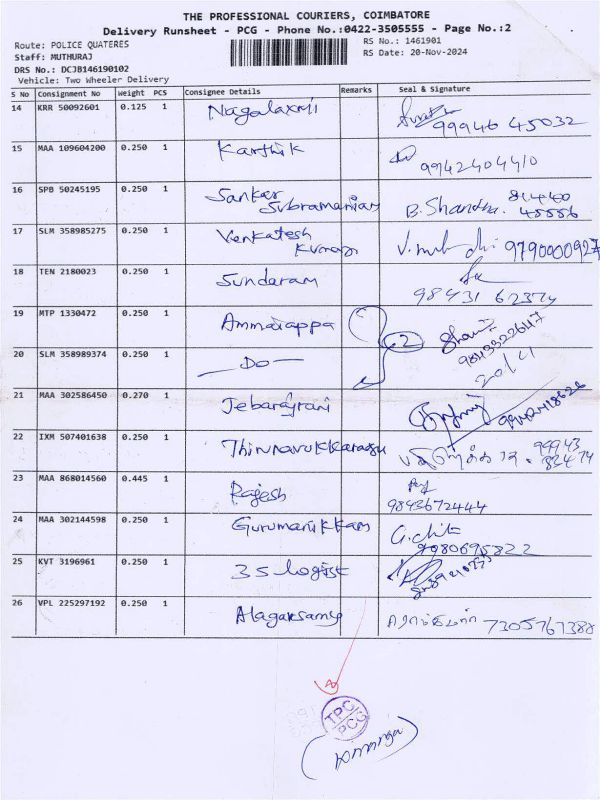 THE PROFESSIONAL COURIERS, COIMBATORE
Delivery Runsheet - PCG - Phone No.:0422-3505555 - Page No.:2
Route: POLICE QUATERES
RS No.: 1461901
Staff: MUTHURAJ
RS Date: 20-Nov-2024
DRS No.: DCJB146190102
Vehicle: Two Wheeler Delivery
S No Consignment No Weight PCS Consignee Details Remarks Seal & Signature
14 KRR 50092601 0.125 1 Nagalaxmi
99946 45032
15 MAA 109604200 0.250 1 Karthik
9942404410
16 SPB 50245195 0.250 1 Sankar
Subramaniam B. Shantha.
17 SLM 358985275 0.250 1 Venkatesh
Kumar 9790000927
18 TEN 2180023 0.250 1 Sundaram
98431 62374
19 MTP 1330472 0.250 1 Ammaiappa
2
20 SLM 358989374 0.250 1 — Do —
20/11
21 MAA 302586450 0.270 1 Jebarajrani
22 IXM 507401638 0.250 1 Thirunavukkarasu 99943
83474
23 MAA 868014560 0.445 1 Rajesh
9843672444
24 MAA 302144598 0.250 1 Gurumanikkam G.chitra
9080695822
25 KVT 3196961 0.250 1 3S logist
26 VPL 225297192 0.250 1 Alagarsamy 7305767388
TPC
PCG